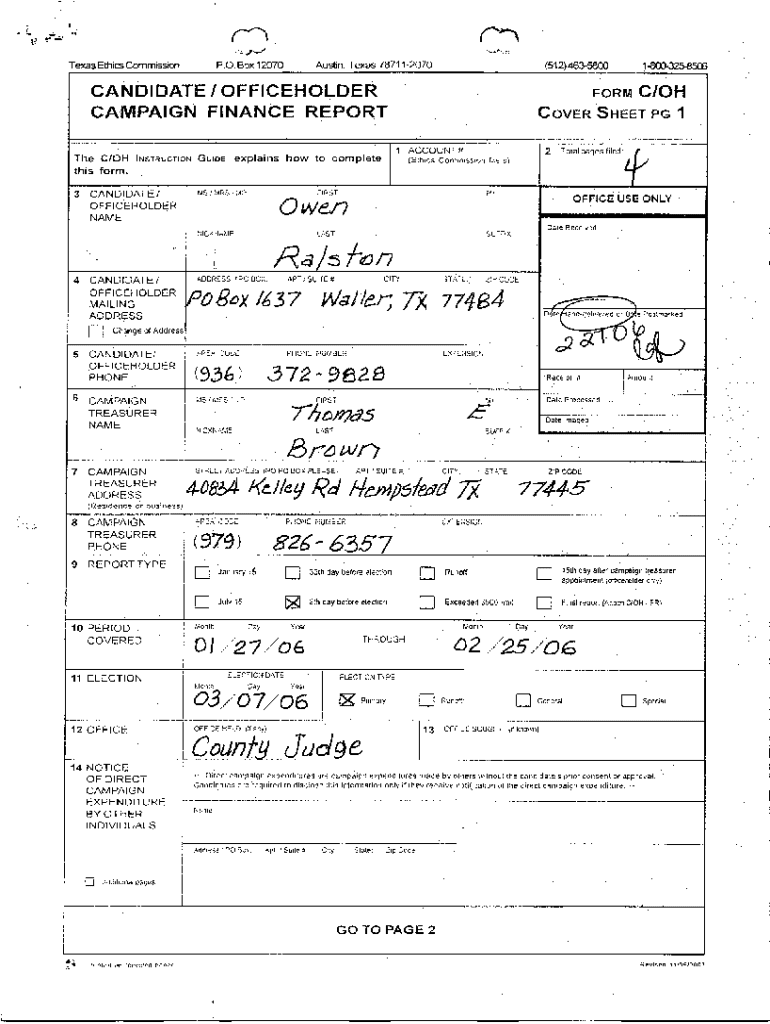 Texas Ethics Commission P.O. Box 12070 Austin, Texas 78711-2070 (512) 463-5800 1-800-325-8506
CANDIDATE / OFFICEHOLDER
CAMPAIGN FINANCE REPORT
FORM C/OH
COVER SHEET PG 1
The C/OH INSTRUCTION GUIDE explains how to complete
this form.
1 ACCOUNT #
(Ethics Commission filers)
2 Total pages filed:
4
3 CANDIDATE /
OFFICEHOLDER
NAME
MS / MRS / MR FIRST MI
Owen
NICKNAME LAST SUFFIX
Ralston
OFFICE USE ONLY
Date Received
4 CANDIDATE /
OFFICEHOLDER
MAILING
ADDRESS
Change of Address
ADDRESS / PO BOX; APT / SUITE #; CITY; STATE; ZIP CODE
PO Box 1637 Waller, TX 77484
Date Hand-delivered or Date Postmarked
5 CANDIDATE /
OFFICEHOLDER
PHONE
AREA CODE PHONE NUMBER EXTENSION
(936) 372-9828
Receipt # Amount
6 CAMPAIGN
TREASURER
NAME
MS / MRS / MR FIRST MI
Thomas E
NICKNAME LAST SUFFIX
Brown
Date Processed
Date Imaged
7 CAMPAIGN
TREASURER
ADDRESS
(Residence or business)
STREET ADDRESS (NO PO BOX PLEASE); APT / SUITE #; CITY; STATE; ZIP CODE
4083A Kelley Rd Hempstead TX 77445
8 CAMPAIGN
TREASURER
PHONE
AREA CODE PHONE NUMBER EXTENSION
(979) 826-6357
9 REPORT TYPE
January 15 30th day before election Runoff 15th day after campaign treasurer
appointment (officeholder only)
July 15 8th day before election Exceeded $500 limit Final report (Attach C/OH - FR)
10 PERIOD
COVERED
Month Day Year THROUGH Month Day Year
01 / 27 / 06 02 / 25 / 06
11 ELECTION
ELECTION DATE
Month Day Year
03 / 07 / 06
ELECTION TYPE
Primary Runoff General Special
12 OFFICE
OFFICE HELD (if any)
County Judge
13 OFFICE SOUGHT (if known)
14 NOTICE
OF DIRECT
CAMPAIGN
EXPENDITURE
BY OTHER
INDIVIDUALS
Direct campaign expenditures are campaign expenditures made by others without the candidate's prior consent or approval.
Candidates are required to disclose this information only if they receive notification of the direct campaign expenditure.
Name
Address / PO Box; Apt. / Suite #; City; State; Zip Code
additional pages
GO TO PAGE 2
Revised